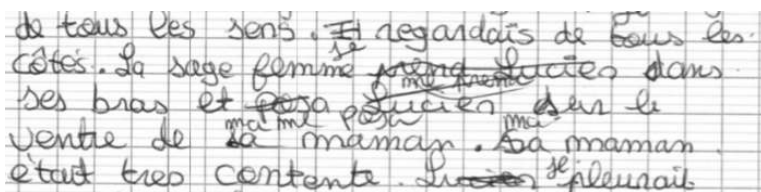 de tous les sens. Je regardais de tous les
côtés. La sage femme me prend dans
ses bras et me posa sur le
ventre de ma maman. ma maman
était tres contente. je pleurait